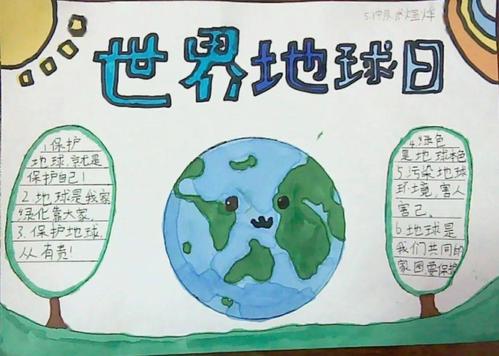 世界地球日
1.保护
地球,就是
保护自己!
2.地球是我家
绿化靠大家。
3.保护地球,
从有责!
4.绿色
是地球本色
5.污染地球
环境,害人
害己。
6.地球是
我们共同的
家园要保护